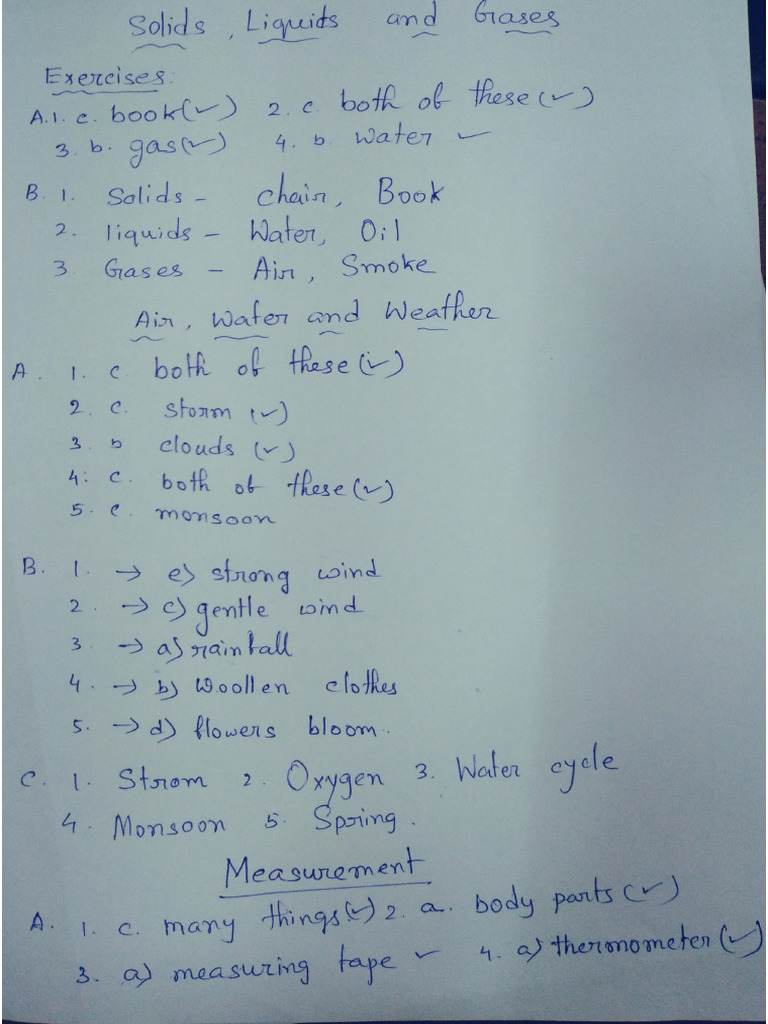 Solids, Liquids and Gases
Exercises.
A.1. c. book(✓) 2. c. both of these(✓)
3. b. gas(✓) 4. b. Water ✓
B. 1. Solids - chair, Book
2. liquids - Water, Oil
3. Gases - Air, Smoke
Air, Water and Weather
A. 1. c. both of these(✓)
2. c. storm (✓)
3. b clouds (✓)
4. c. both of these(✓)
5. c. monsoon
B. 1. → e) strong wind
2. → c) gentle wind
3. → a) rainfall
4. → b) Woollen clothes
5. → d) flowers bloom.
C. 1. Strom 2. Oxygen 3. Water cycle
4. Monsoon 5. Spring.
Measurement
A. 1. c. many things(✓) 2. a. body parts(✓)
3. a) measuring tape ✓ 4. a) thermometer(✓)